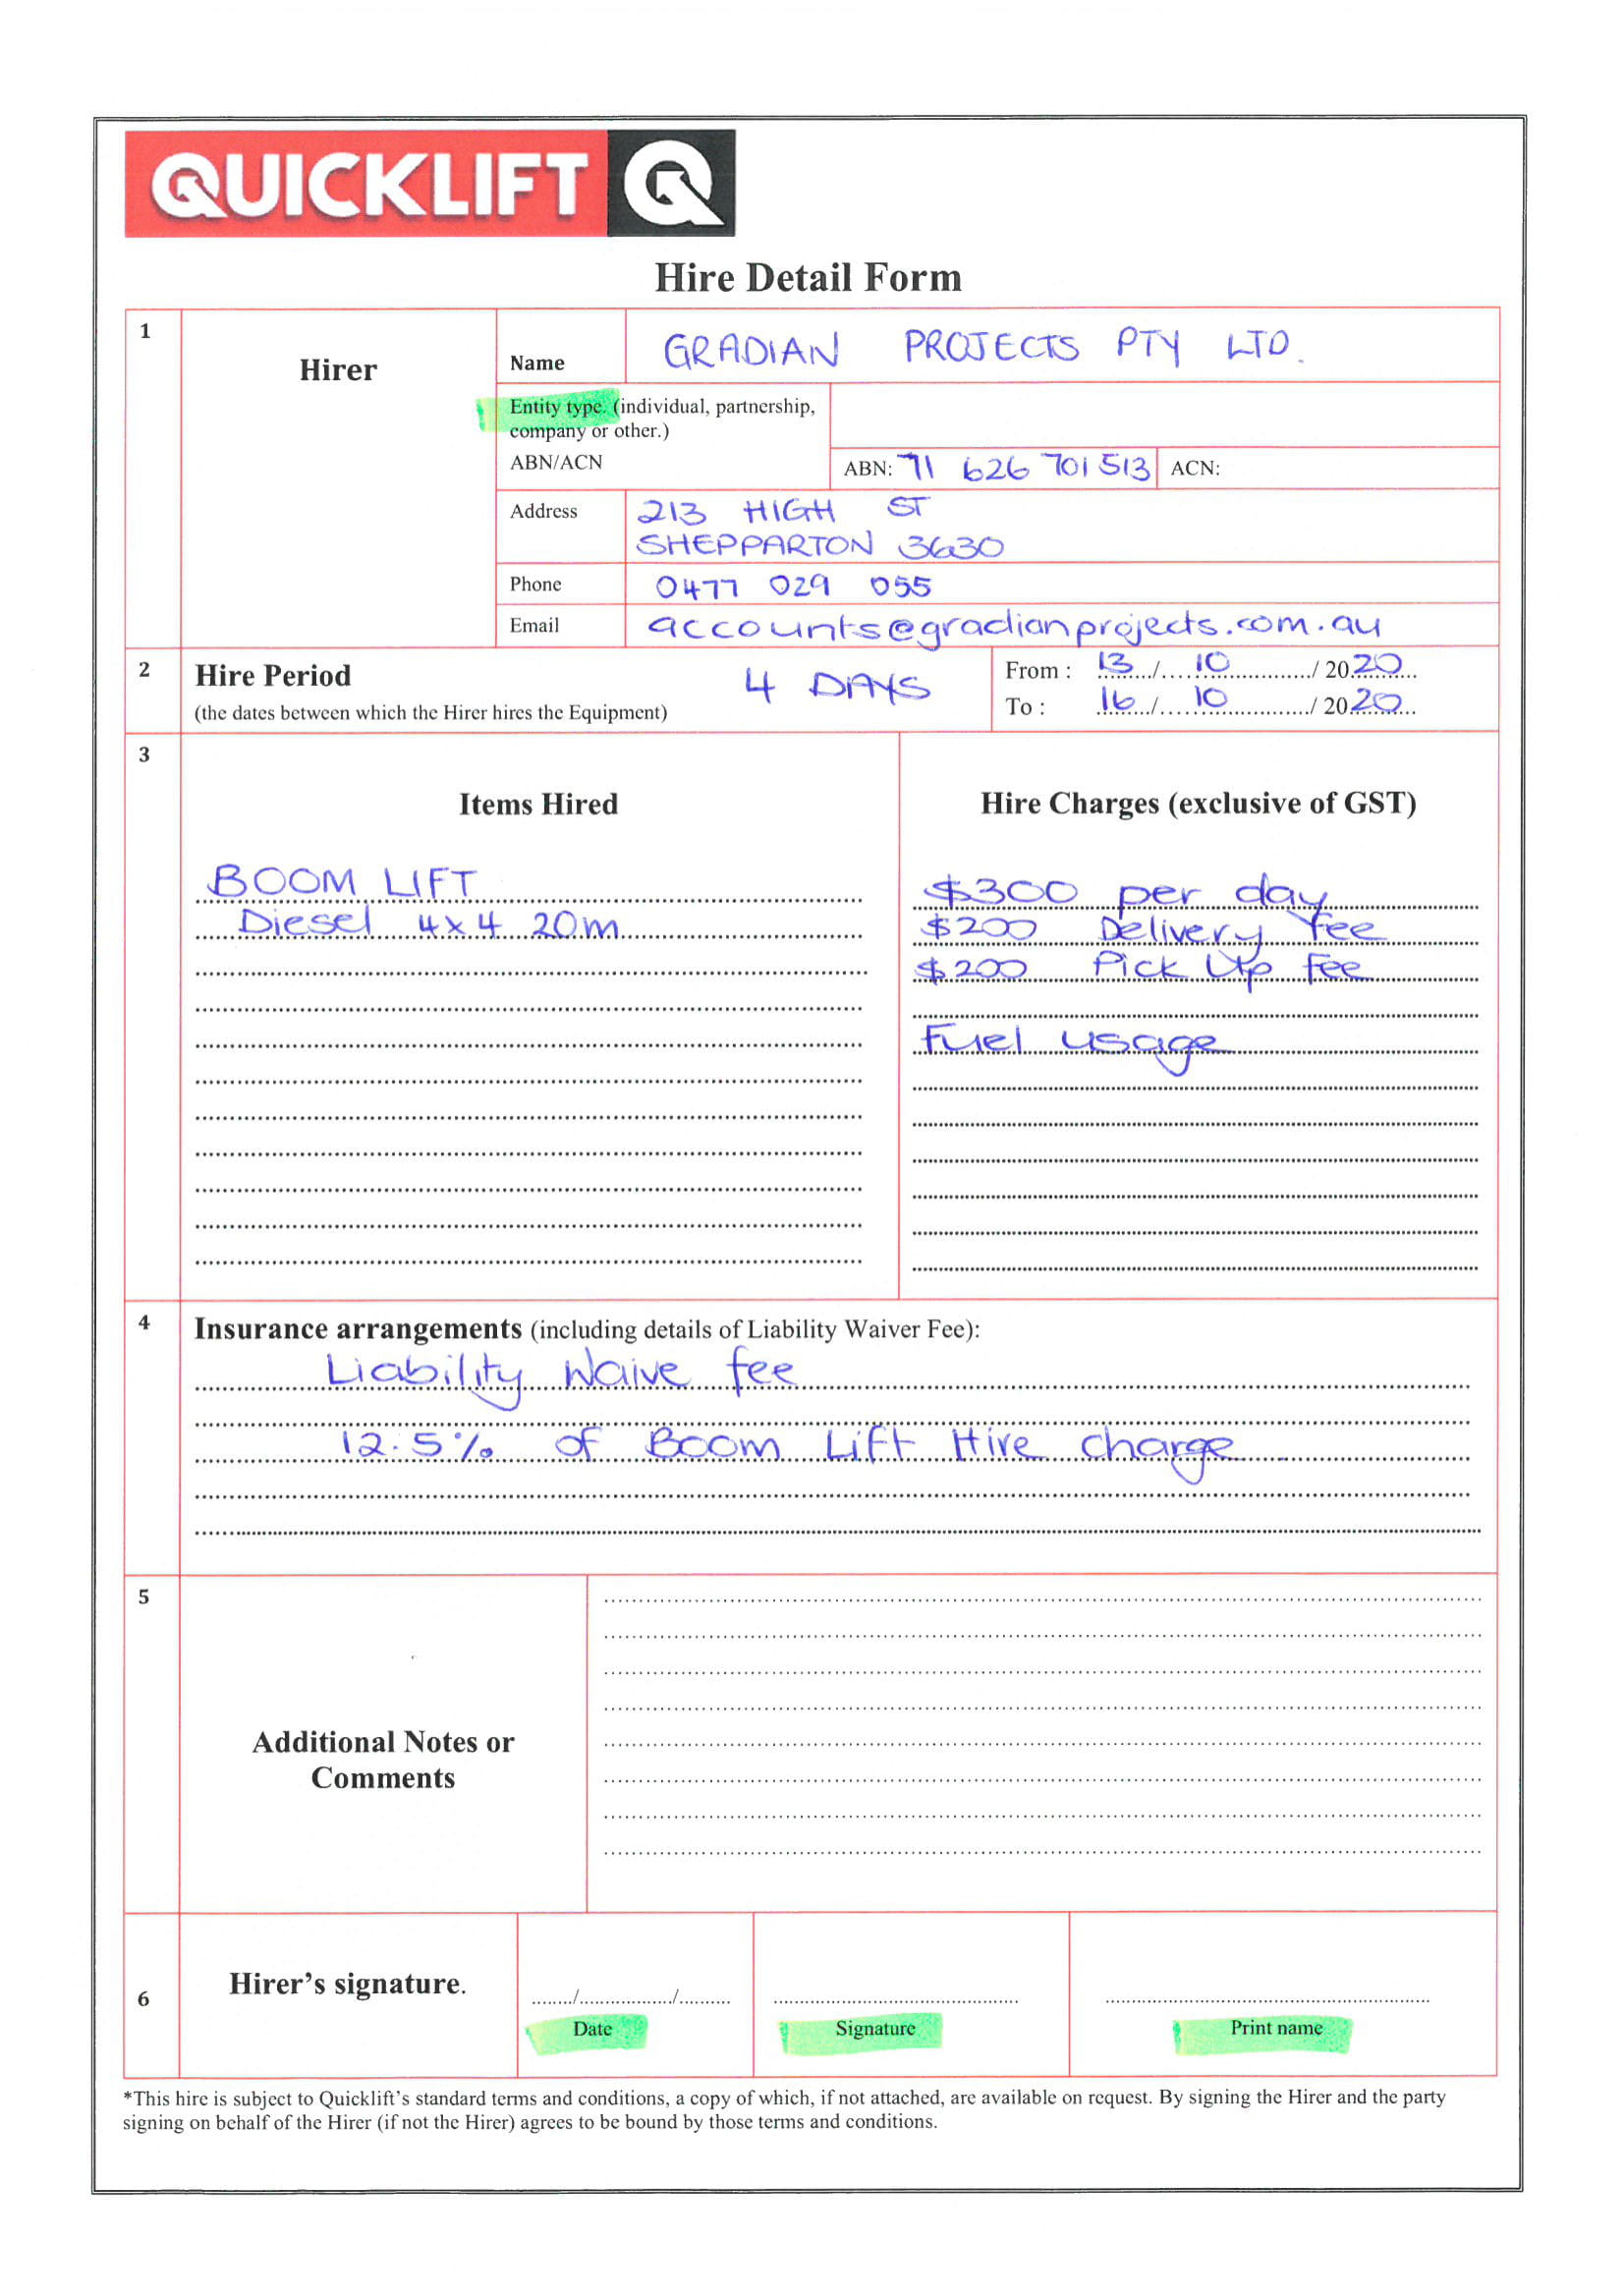 QUICKLIFT
Hire Detail Form
1
Hirer
Name
GRADIAN PROJECTS PTY LTD.
Entity type. (individual, partnership,
company or other.)
ABN/ACN
ABN: 71 626 701 513 ACN:
Address
213 HIGH ST
SHEPPARTON 3630
Phone
0477 029 055
Email
accounts@gradianprojects.com.au
2
Hire Period
(the dates between which the Hirer hires the Equipment)
4 DAYS
From : 13 / 10 / 2020
To : 16 / 10 / 2020
3
Items Hired
BOOM LIFT
Diesel 4x4 20m
Hire Charges (exclusive of GST)
$300 per day
$200 Delivery fee
$200 Pick Up fee
Fuel usage
4
Insurance arrangements (including details of Liability Waiver Fee):
Liability Waive fee
12.5% of Boom Lift Hire charge
5
Additional Notes or
Comments
6
Hirer's signature.
......./................/.........
Date
Signature
Print name
*This hire is subject to Quicklift's standard terms and conditions, a copy of which, if not attached, are available on request. By signing the Hirer and the party
signing on behalf of the Hirer (if not the Hirer) agrees to be bound by those terms and conditions.